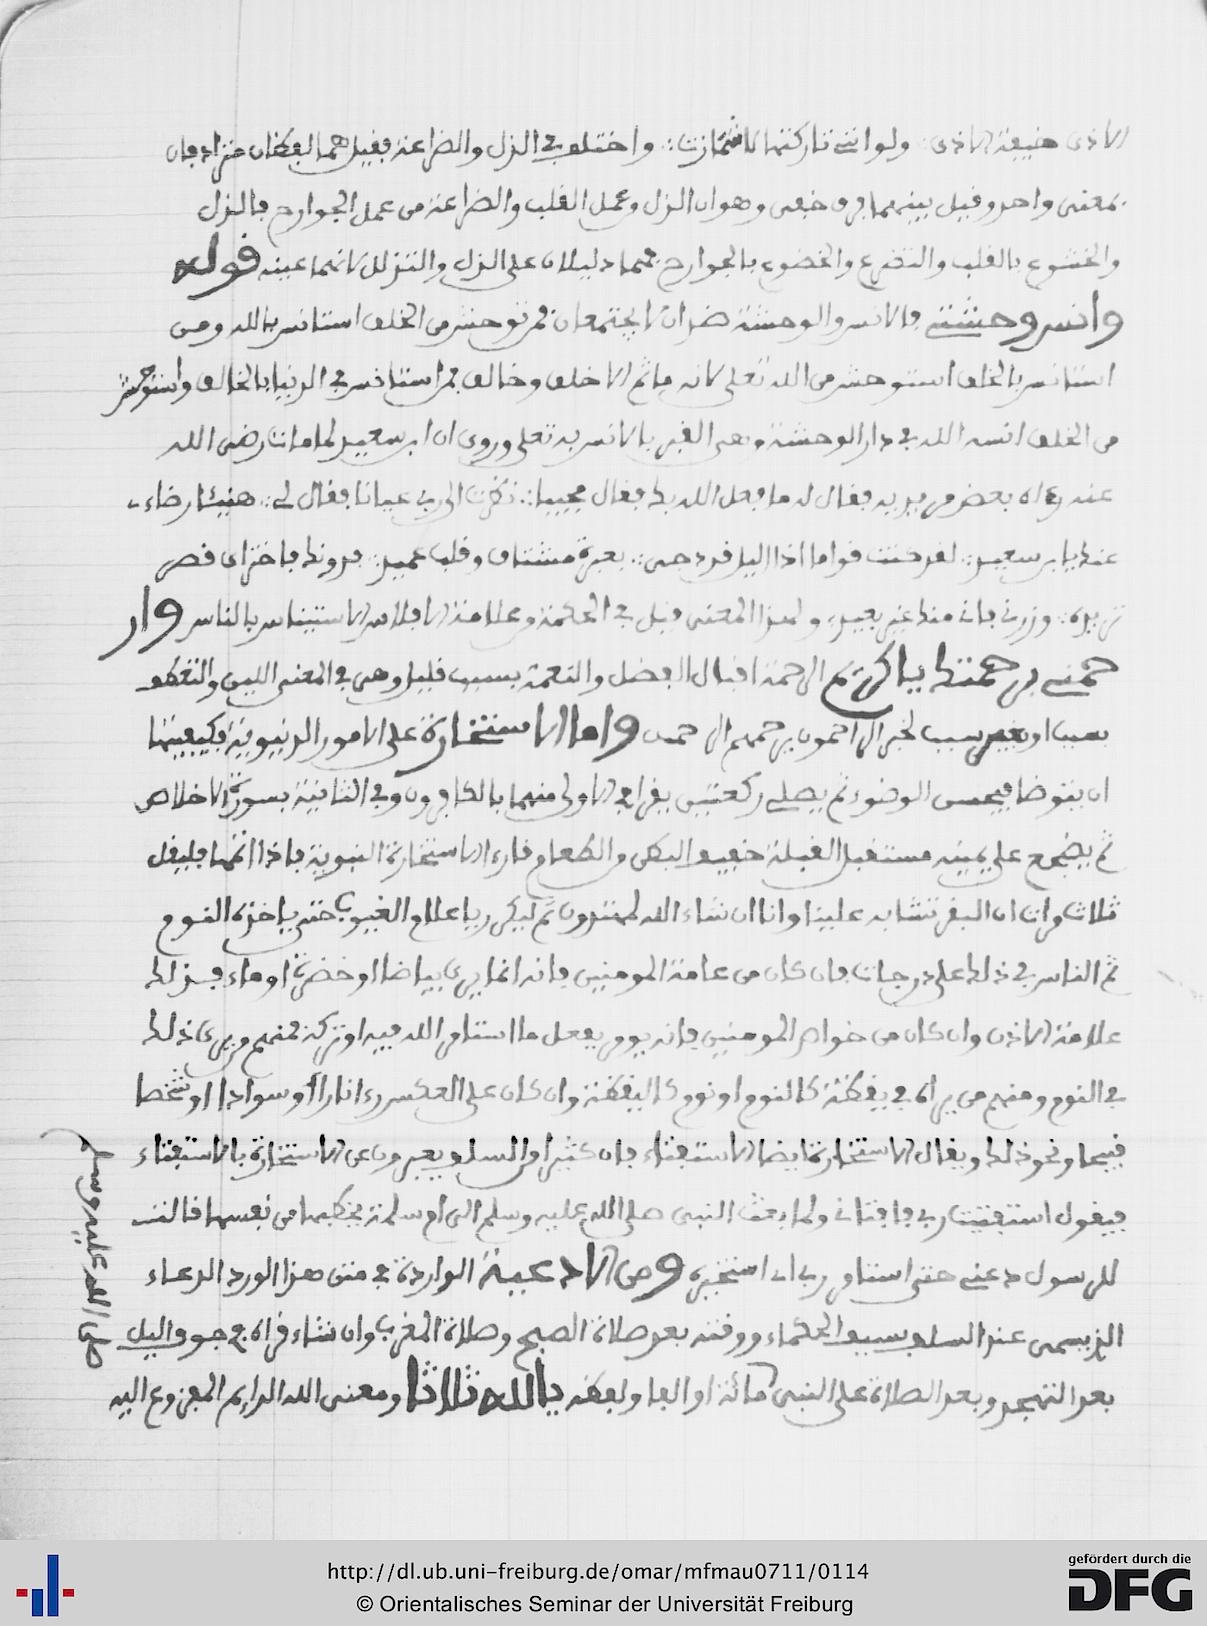 الاذى خيفة الاذى ولو اننى تاركتها لاشمازت واختلف في الذل والضراعة فقيل هما لفظان مترادفان
بمعنى واحد وقيل بينهما فرق خفي وهو ان الذل وعمل القلب والضراعة من عمل الجوارح فالذل
والخشوع بالقلب والتضرع والخضوع بالجوارح فهما دليلان على الذل والتذلل لانهما عينه قوله
وانس وحشتي فالانس والوحشة ضدان لا يجتمعان فمن توحش من الخلق استانس بالله ومن
استانس بالخلق استوحش من الله تعلى لانه ماثم الا خلق وخالق فمن استانس في الدنيا بالخالق واستوحش
من الخلق انسه الله في دار الوحشة وهى القبر بالانس به تعلى وروى ان ابن سعيد لما مات رضي الله
عنه رءاه بعض مريديه فقال له ما فعل الله بك فقال مجيبا نظرت الى ربي عيانا فقال لي هنيئا رضاءي
عنك يابن سعيد لقد كنت قواما اذا اليل قد دجى بعبرة مشتاق وقلب عميد فدونك فاختر اى قصر
تريده وزرني فاني منك غير بعيد ولهذا المعنى قيل في الحكمة وعلامة الافلاس الاستيناس بالناس وار
حمني برحمتك يا كريم الرحمة اقبال الفضل والنعمة بسبب قليل وهى في المعنى اللين والتعطف
بسبب او بغير سبب لخبر الراحمون يرحمهم الرحمن واما الاستخارة على الامور الدنيوية فكيفيتها
ان يتوضا فيحسن الوضوء ثم يصلي ركعتين يقرا في الاولى منهما بالكافرون وفي الثانية بسورة الاخلاص
ثم يضجع على يمينه مستقبل القبلة خفيف البطن والطعام قارءا الاستخارة النبوية فاذا اتمها فليقل
ثلاث مرات ان البقر تشابه علينا وانا ان شاء الله لمهتدون ثم ليكرر يا علام الغيوب حتى ياخذه النوم
ثم الناس في ذلك على درجات فان كان من عامة المومنين فانه انما يرى بياضا او خضرة او ماء فذلك
علامة الاذن وان كان من خواص المومنين فانه يومر بفعل ما استامر الله فيه او تركه فمنهم من يرى ذلك
في النوم ومنهم من يراه في يقظة كالنوم او نوم كاليقظة وان كان على العكس رءا نارا أو سوادا او شخصا
قبيحا ونحو ذلك ويقال الاستخارة ايضا الاستفتاء فان كثيرا من السلف يعبرون عن الاستخارة بالاستفتاء
فيقول استفتيت ربي فافتاني ولما بعث النبى صلى الله عليه وسلم الى ام سلمة يخطبها من نفسها قالت
للرسول دعني حتى استامر ربي اى استخيره ومن الادعية الواردة في متن هذا الورد الدعاء
الذي يسمى عند السلف بسيف الحكماء ووقته بعد صلاة الصبح وصلاة المغرب وان شاء قراه في جوف اليل
بعد التهجد وبعد الصلاة على النبى مائة او الفا ولفظه يا الله ثلاثا ومعنى الله الدايم المفزوع اليه
صلى الله عليه وسلم
http://dl.ub.uni-freiburg.de/omar/mfmau0711/0114
© Orientalisches Seminar der Universität Freiburg
gefördert durch die
DFG